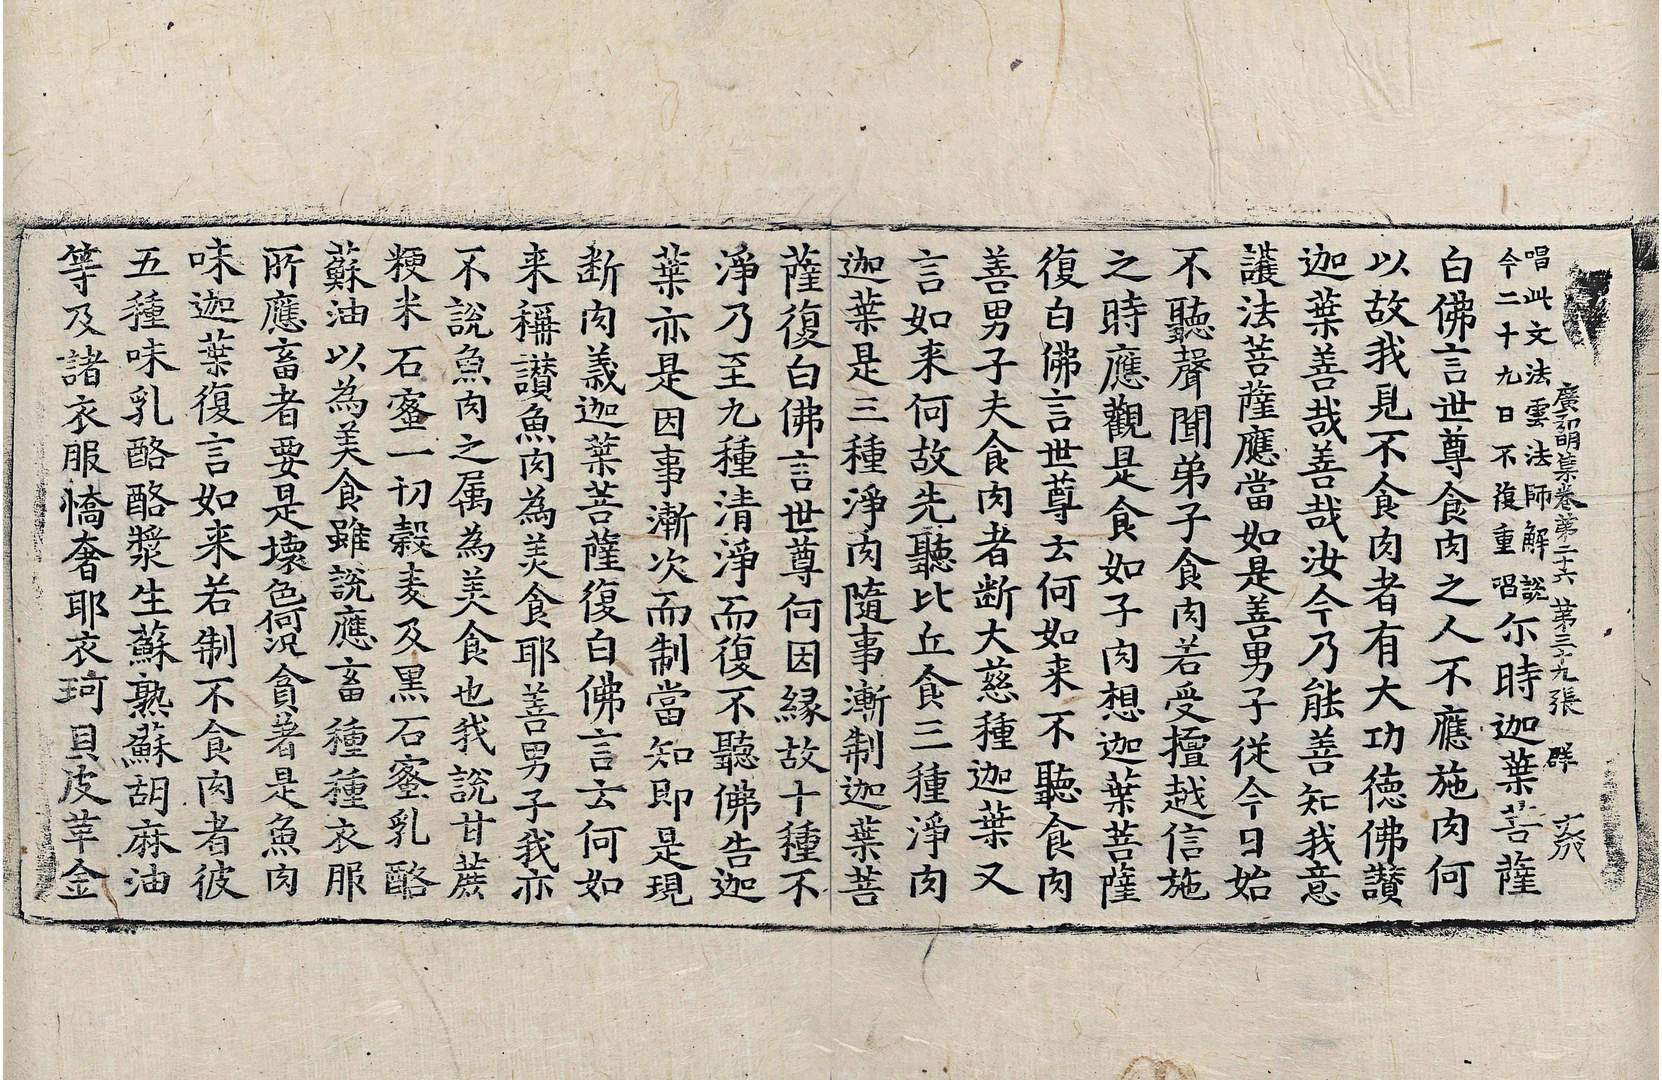 廣弘明集卷第二十六 第三十九張 群
唱此文法雲法師解說
今二十九日不復重唱
尒時迦葉菩薩
白佛言世尊食肉之人不應施肉何
以故我見不食肉者有大功徳佛讃
迦葉善哉善哉汝今乃能善知我意
護法菩薩應當如是善男子従今日始
不聽聲聞弟子食肉若受擅越信施
之時應觀是食如子肉想迦葉菩薩
復白佛言世尊云何如来不聽食肉
善男子夫食肉者断大慈種迦葉又
言如来何故先聽比丘食三種淨肉
迦葉是三種淨肉隨事漸制迦葉菩
薩復白佛言世尊何因縁故十種不
淨乃至九種清淨而復不聽佛告迦
葉亦是因事漸次而制當知即是現
断肉義迦葉菩薩復白佛言云何如
来稱讃魚肉為美食耶善男子我亦
不說魚肉之属為美食也我說甘蔗
粳米石蜜一切穀麦及黒石蜜乳酪
蘇油以為美食雖說應畜種種衣服
所應畜者要是壞色何況貪著是魚肉
味迦葉復言如来若制不食肉者彼
五種味乳酪酪漿生蘇熟蘇胡麻油
等及諸衣服憍奢耶衣珂貝皮革金